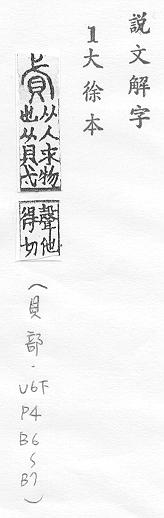 説文解字
1大徐本
貣
从人求物
也从貝弋
聲他
得切
(貝部・V6下
P4
B6
〜
B7)